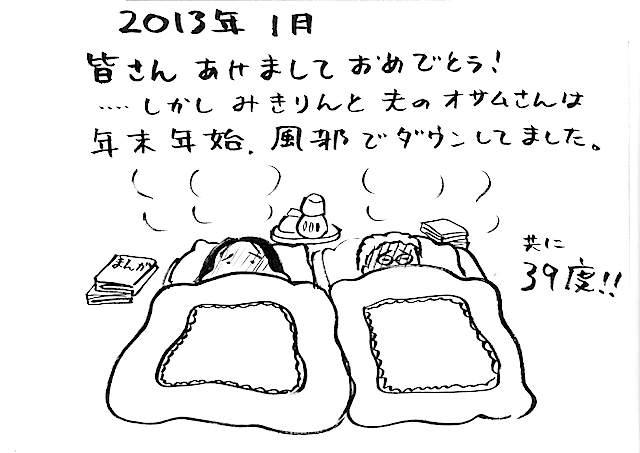 2013年 1月
皆さん あけまして おめでとう!
‥‥しかし みきりんと 夫の オサムさんは
年末年始、風邪でダウンしてました。
まんが
共に
39度!!